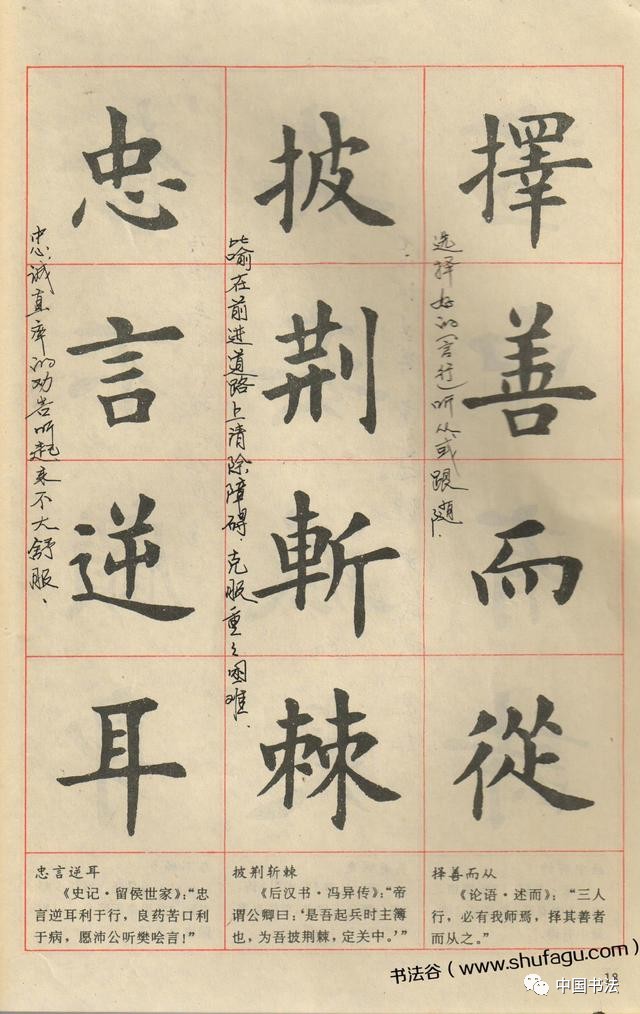 擇善而從
选择好的(言行)听从或跟随.
披荆斬棘
比喻在前进道路上清除障碍.克服重々困难.
忠言逆耳
忠诚直率的劝告听起来不大舒服.
择善而从
《论语·述而》:“三人
行,必有我师焉,择其善者
而从之。”
披荆斩棘
《后汉书·冯异传》:“帝
谓公卿曰:‘是吾起兵时主簿
也,为吾披荆棘,定关中。’”
忠言逆耳
《史记·留侯世家》:“忠
言逆耳利于行,良药苦口利
于病,愿沛公听樊哙言!”
书法谷(www.shufagu.com
中国书法